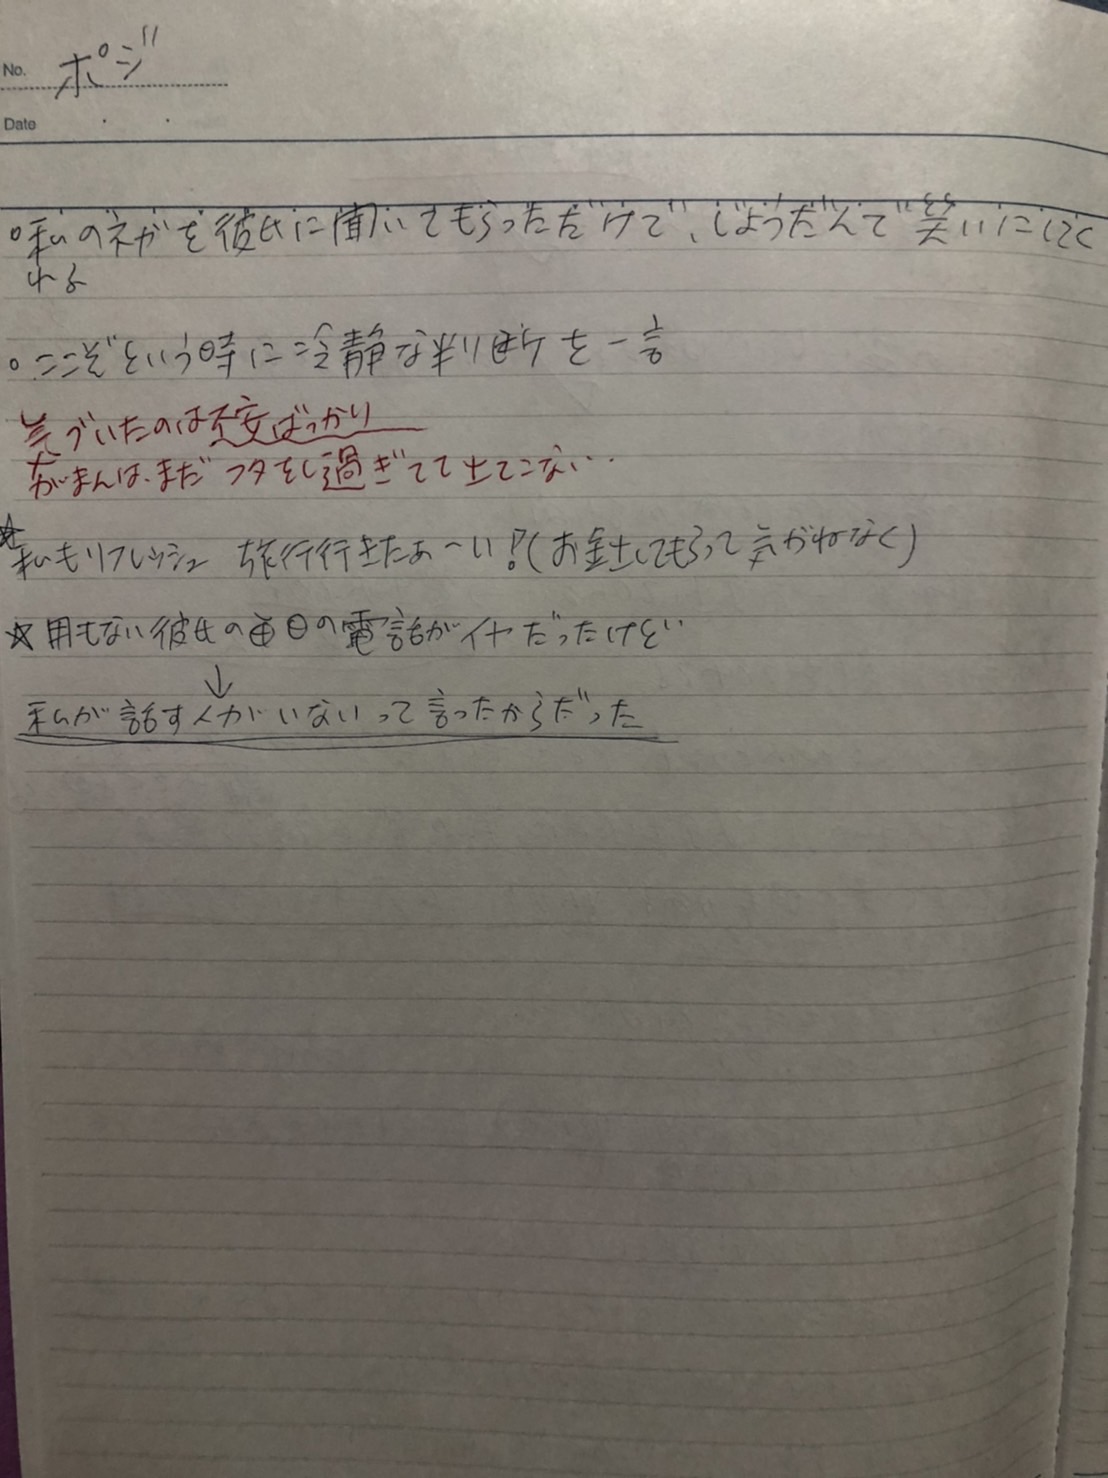 No. ポジ
Date ・ ・
○私のネガを彼氏に聞いてもらっただけで、じょうだんで笑いにしてく
れる
○ここぞという時に冷静な判断を一言
気づいたのは不安ばっかり
がまんは、まだフタをし過ぎてて出てこない..
☆私もリフレッシュ 旅行行きたぁ〜い!(お金出してもらって気がねなく)
☆用もない彼氏の毎日の電話がイヤだったけど
↓
私が話す人がいないって言ったからだった